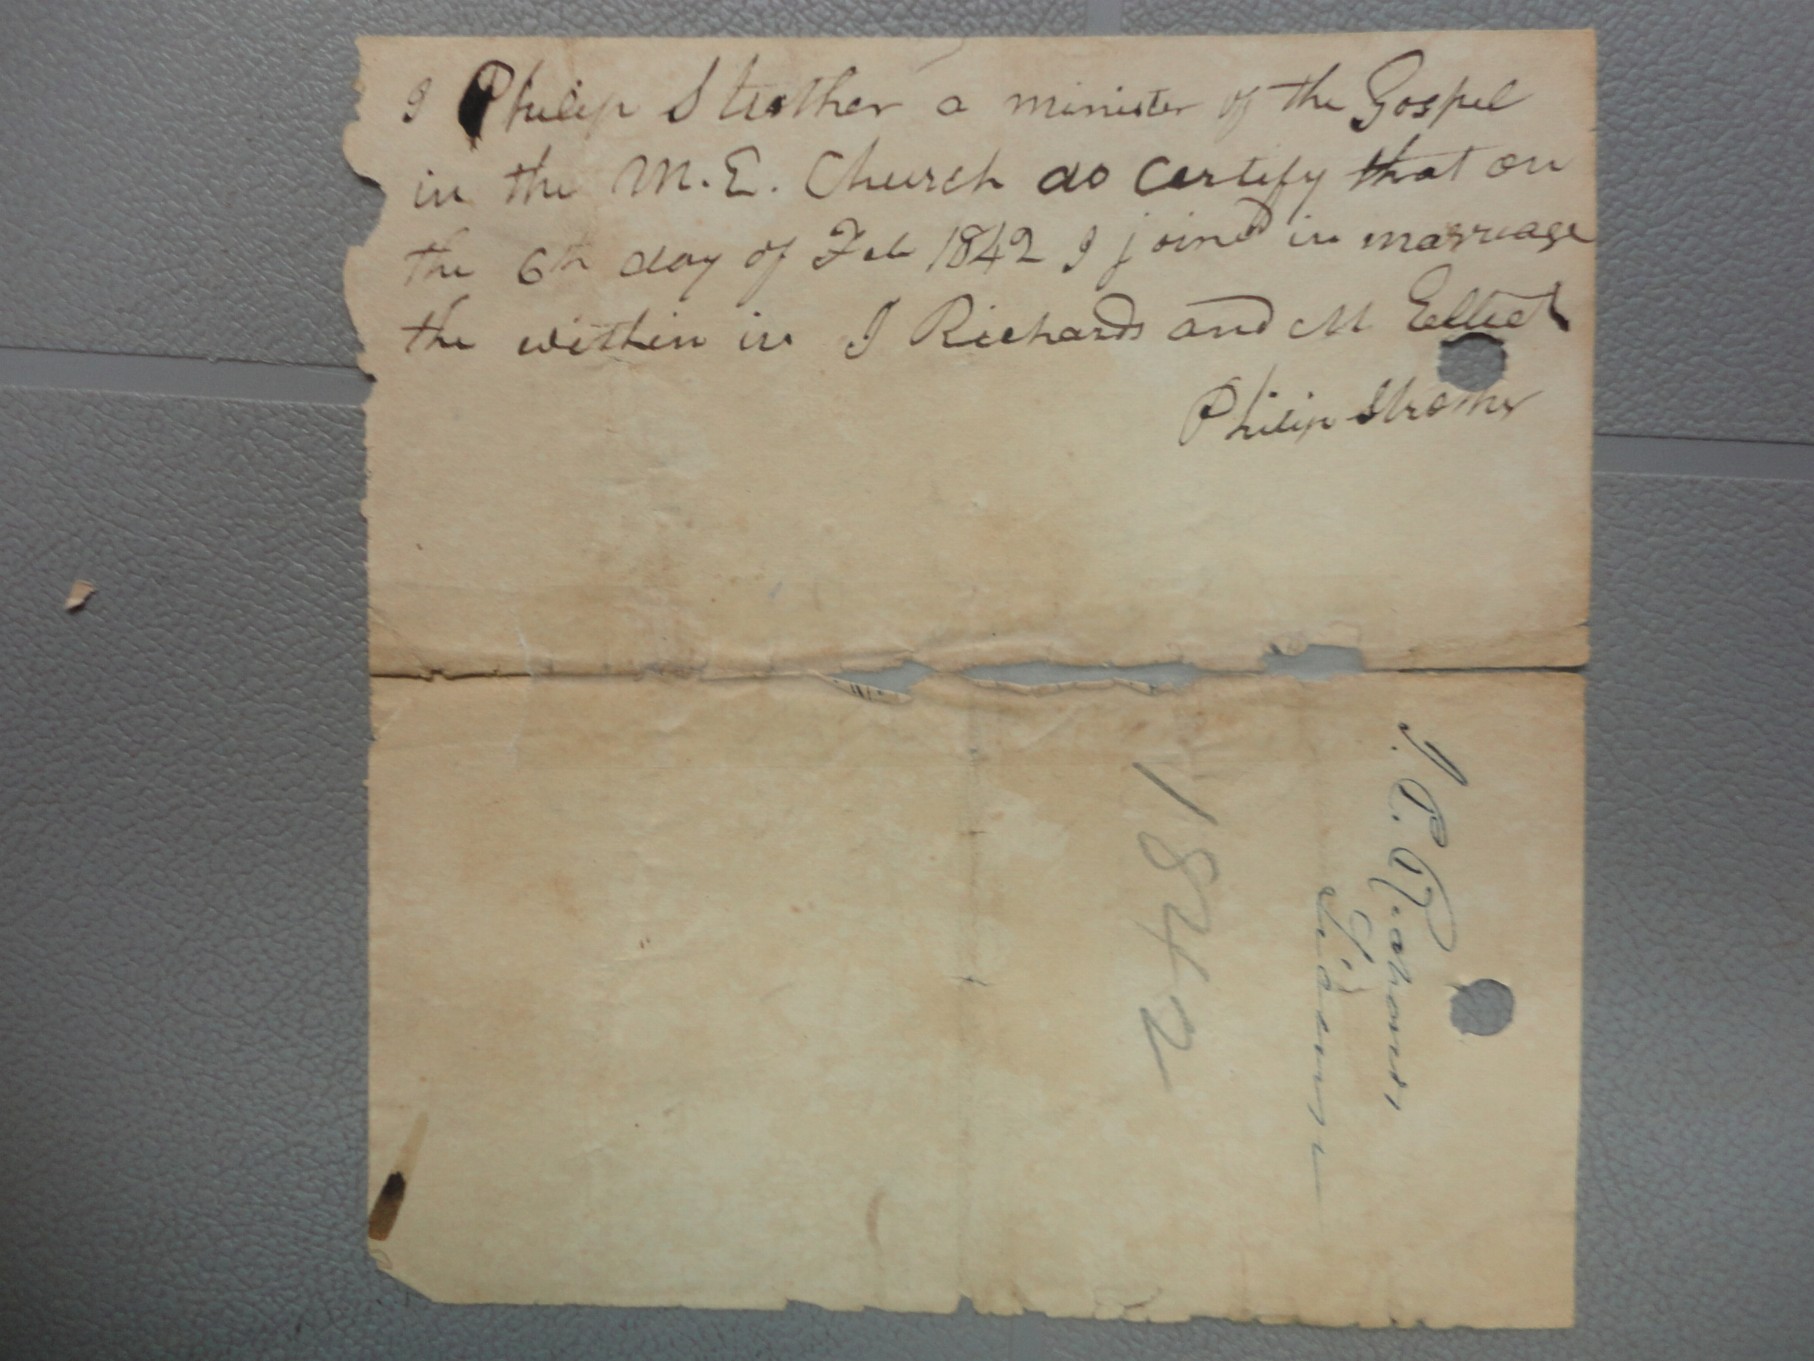 I Philip Strother a minister of the Gospel
in the M.E. Church do certify that on
the 6th day of Feb 1842 I joind in marriage
the within in I Richards and M Elliot
Philip Strother
J. P. Richards,
License
1842